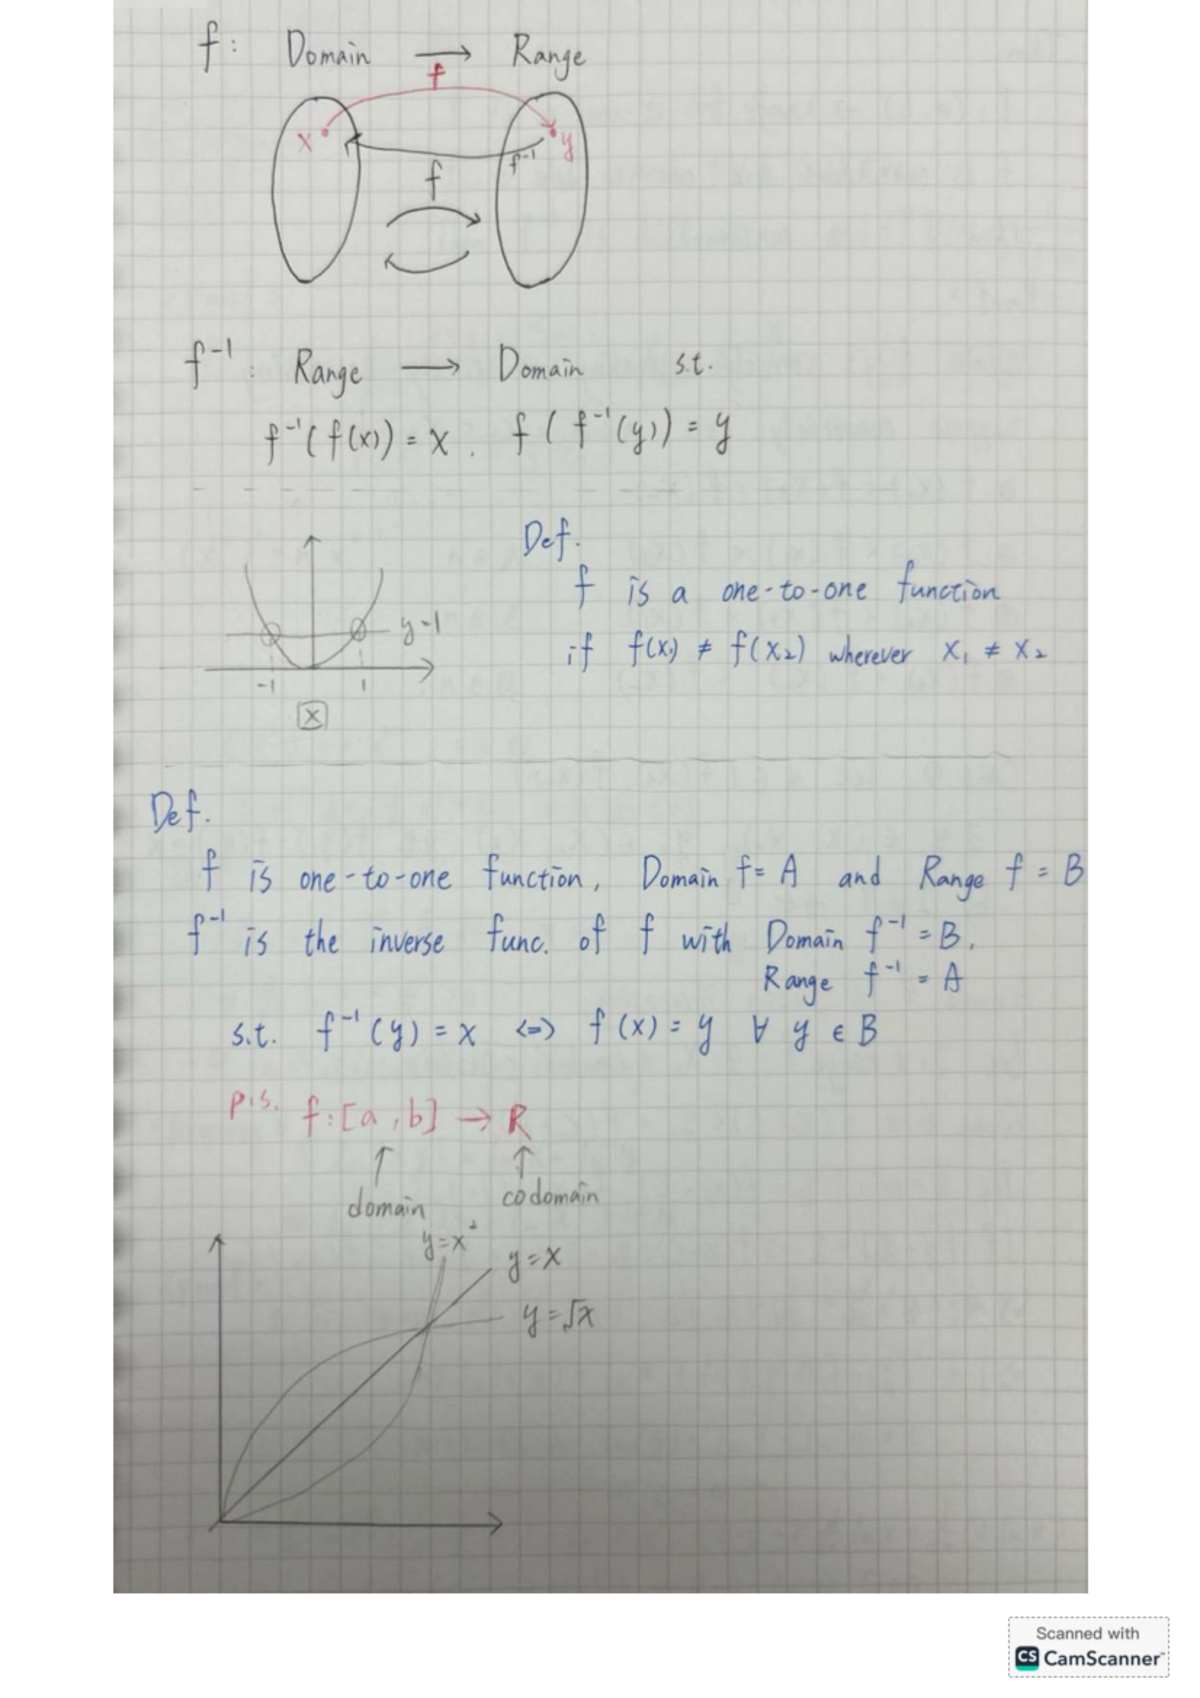 f: Domain → Range
f
x
y
f⁻¹
f
f⁻¹: Range → Domain s.t.
f⁻¹(f(x)) = x. f(f⁻¹(y)) = y
Def.
f is a one-to-one function
if f(x₁) ≠ f(x₂) wherever x₁ ≠ x₂
y-1
-1 1
x
Def.
f is one-to-one function, Domain f = A and Range f = B
f⁻¹ is the inverse func. of f with Domain f⁻¹ = B,
Range f⁻¹ = A
s.t. f⁻¹(y) = x <=> f(x) = y ∀ y ∈ B
p.s. f: [a, b] → R
↑ ↑
domain codomain
y=x²
y=x
y=√x
Scanned with
CS CamScanner